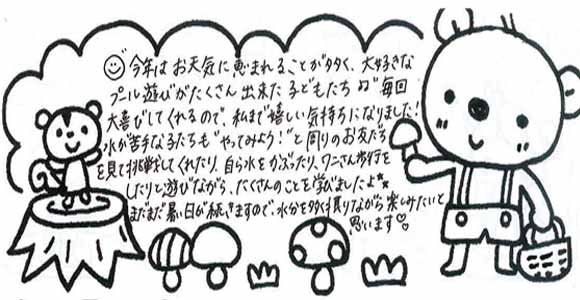 今年はお天気に恵まれることが多く、大好きな
プール遊びがたくさん出来た子どもたち♫毎回
大喜びしてくれるので、私まで嬉しい気持ちになりました!
水が苦手な子たちも“やってみよう!”と周りのお友だち
を見て挑戦してくれたり、自ら水をかぶったり、ワニさん歩行を
したりと遊びながら、たくさんのことを学びましたよ★
まだまだ暑い日が続きますので、水分を多く摂りながら楽しみたいと
思います♡